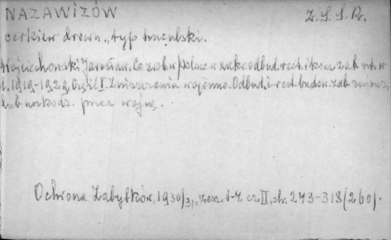 NAZAWIZÓW
Z.S.S.R.
cerkiew drewn., typ huculski.
Wojciechowski Jarosław. Co zrob. w Polsce w zakr. odbud. rest. i kons. zab. nr. w
l. 1919-1929. Część I. Zniszczenia wojenne. Odbud. i rest. budow. zab. zniszcz.
lub uszkodz. przez wojnę.
Ochrona Zabytków, 1930/31, zesz. 1-4 cz. II, str. 243-318 /260/.